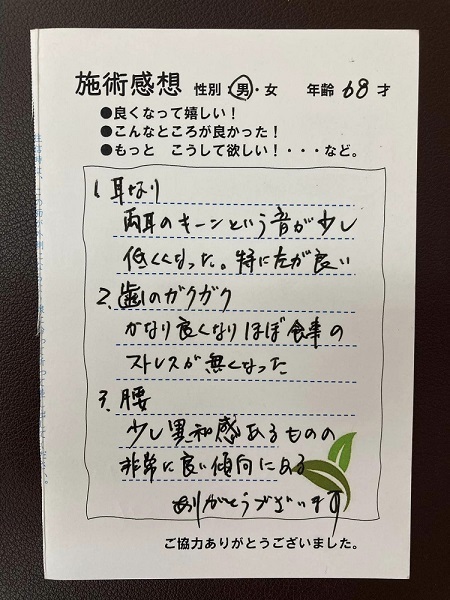 施術感想 性別・男・女 年齢 68 才
●良くなって嬉しい！
●こんなところが良かった！
●もっと こうして欲しい！・・・など。
1、耳なり
両耳のキーンという音が少し
低くくなった。特に左が良い
2、歯のガクガク
かなり良くなりほぼ食事の
ストレスが無くなった
3、腰
少し異和感あるものの
非常に良い傾向にある
ありがとうございます
ご協力ありがとうございました。